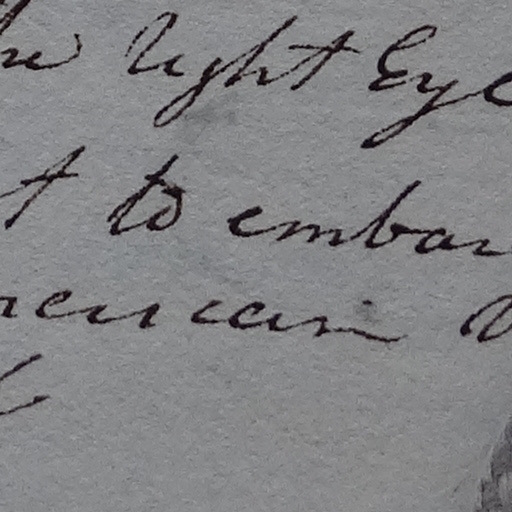 the right Eye
t to embar
merican V